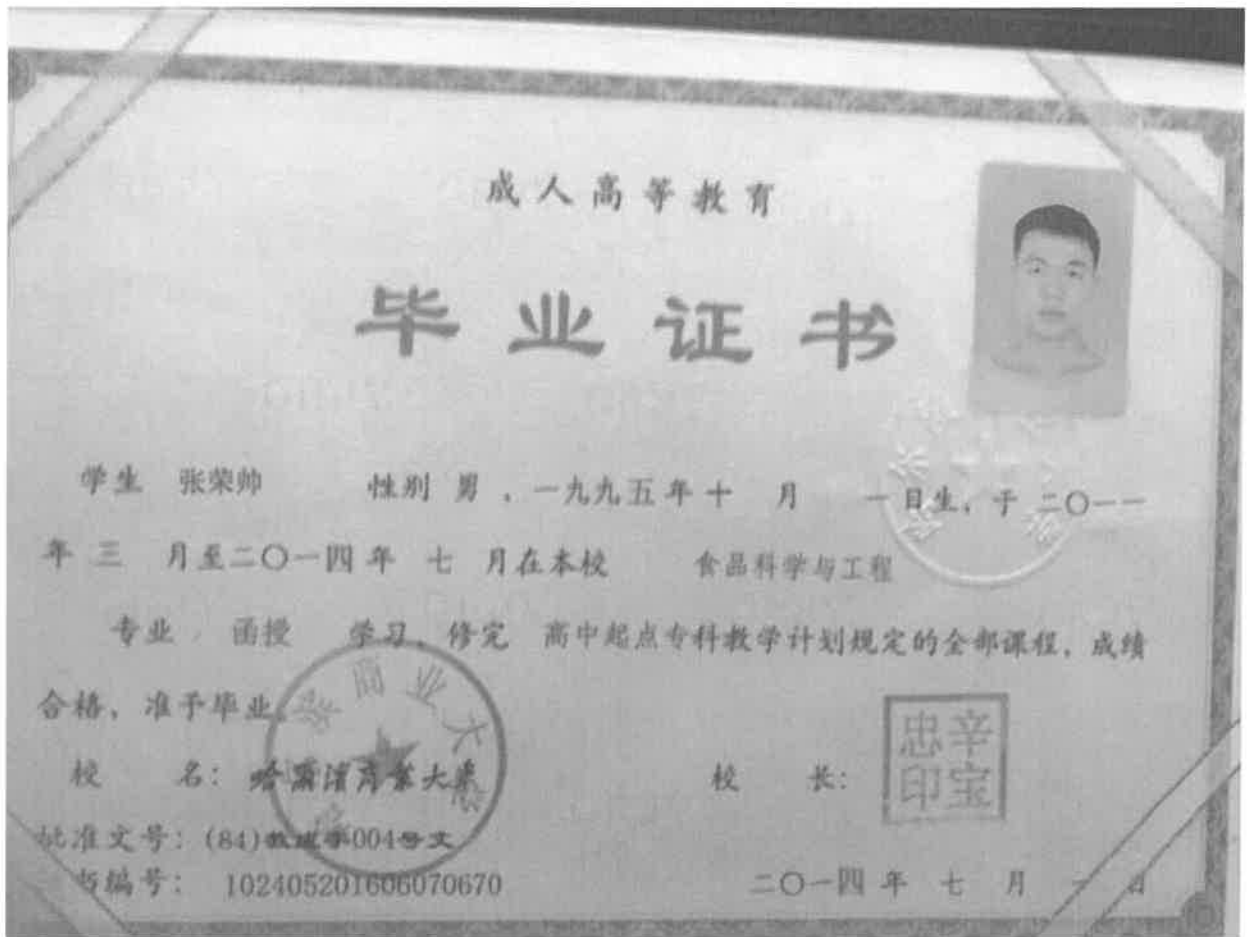 成人高等教育
毕业证书
学生 张荣帅 性别 男 ，一九九五年十 月 一日生，于 二〇一一
年 三 月至二〇一四 年 七 月在本校 食品科学与工程
专业 函授 学习，修完 高中起点专科教学计划规定的全部课程，成绩
合格，准予毕业。
校 名：哈尔滨商业大学 校 长：辛宝忠印
批准文号：(84)教成字004号文
书编号： 102405201606070670 二〇一四 年 七 月 一 日